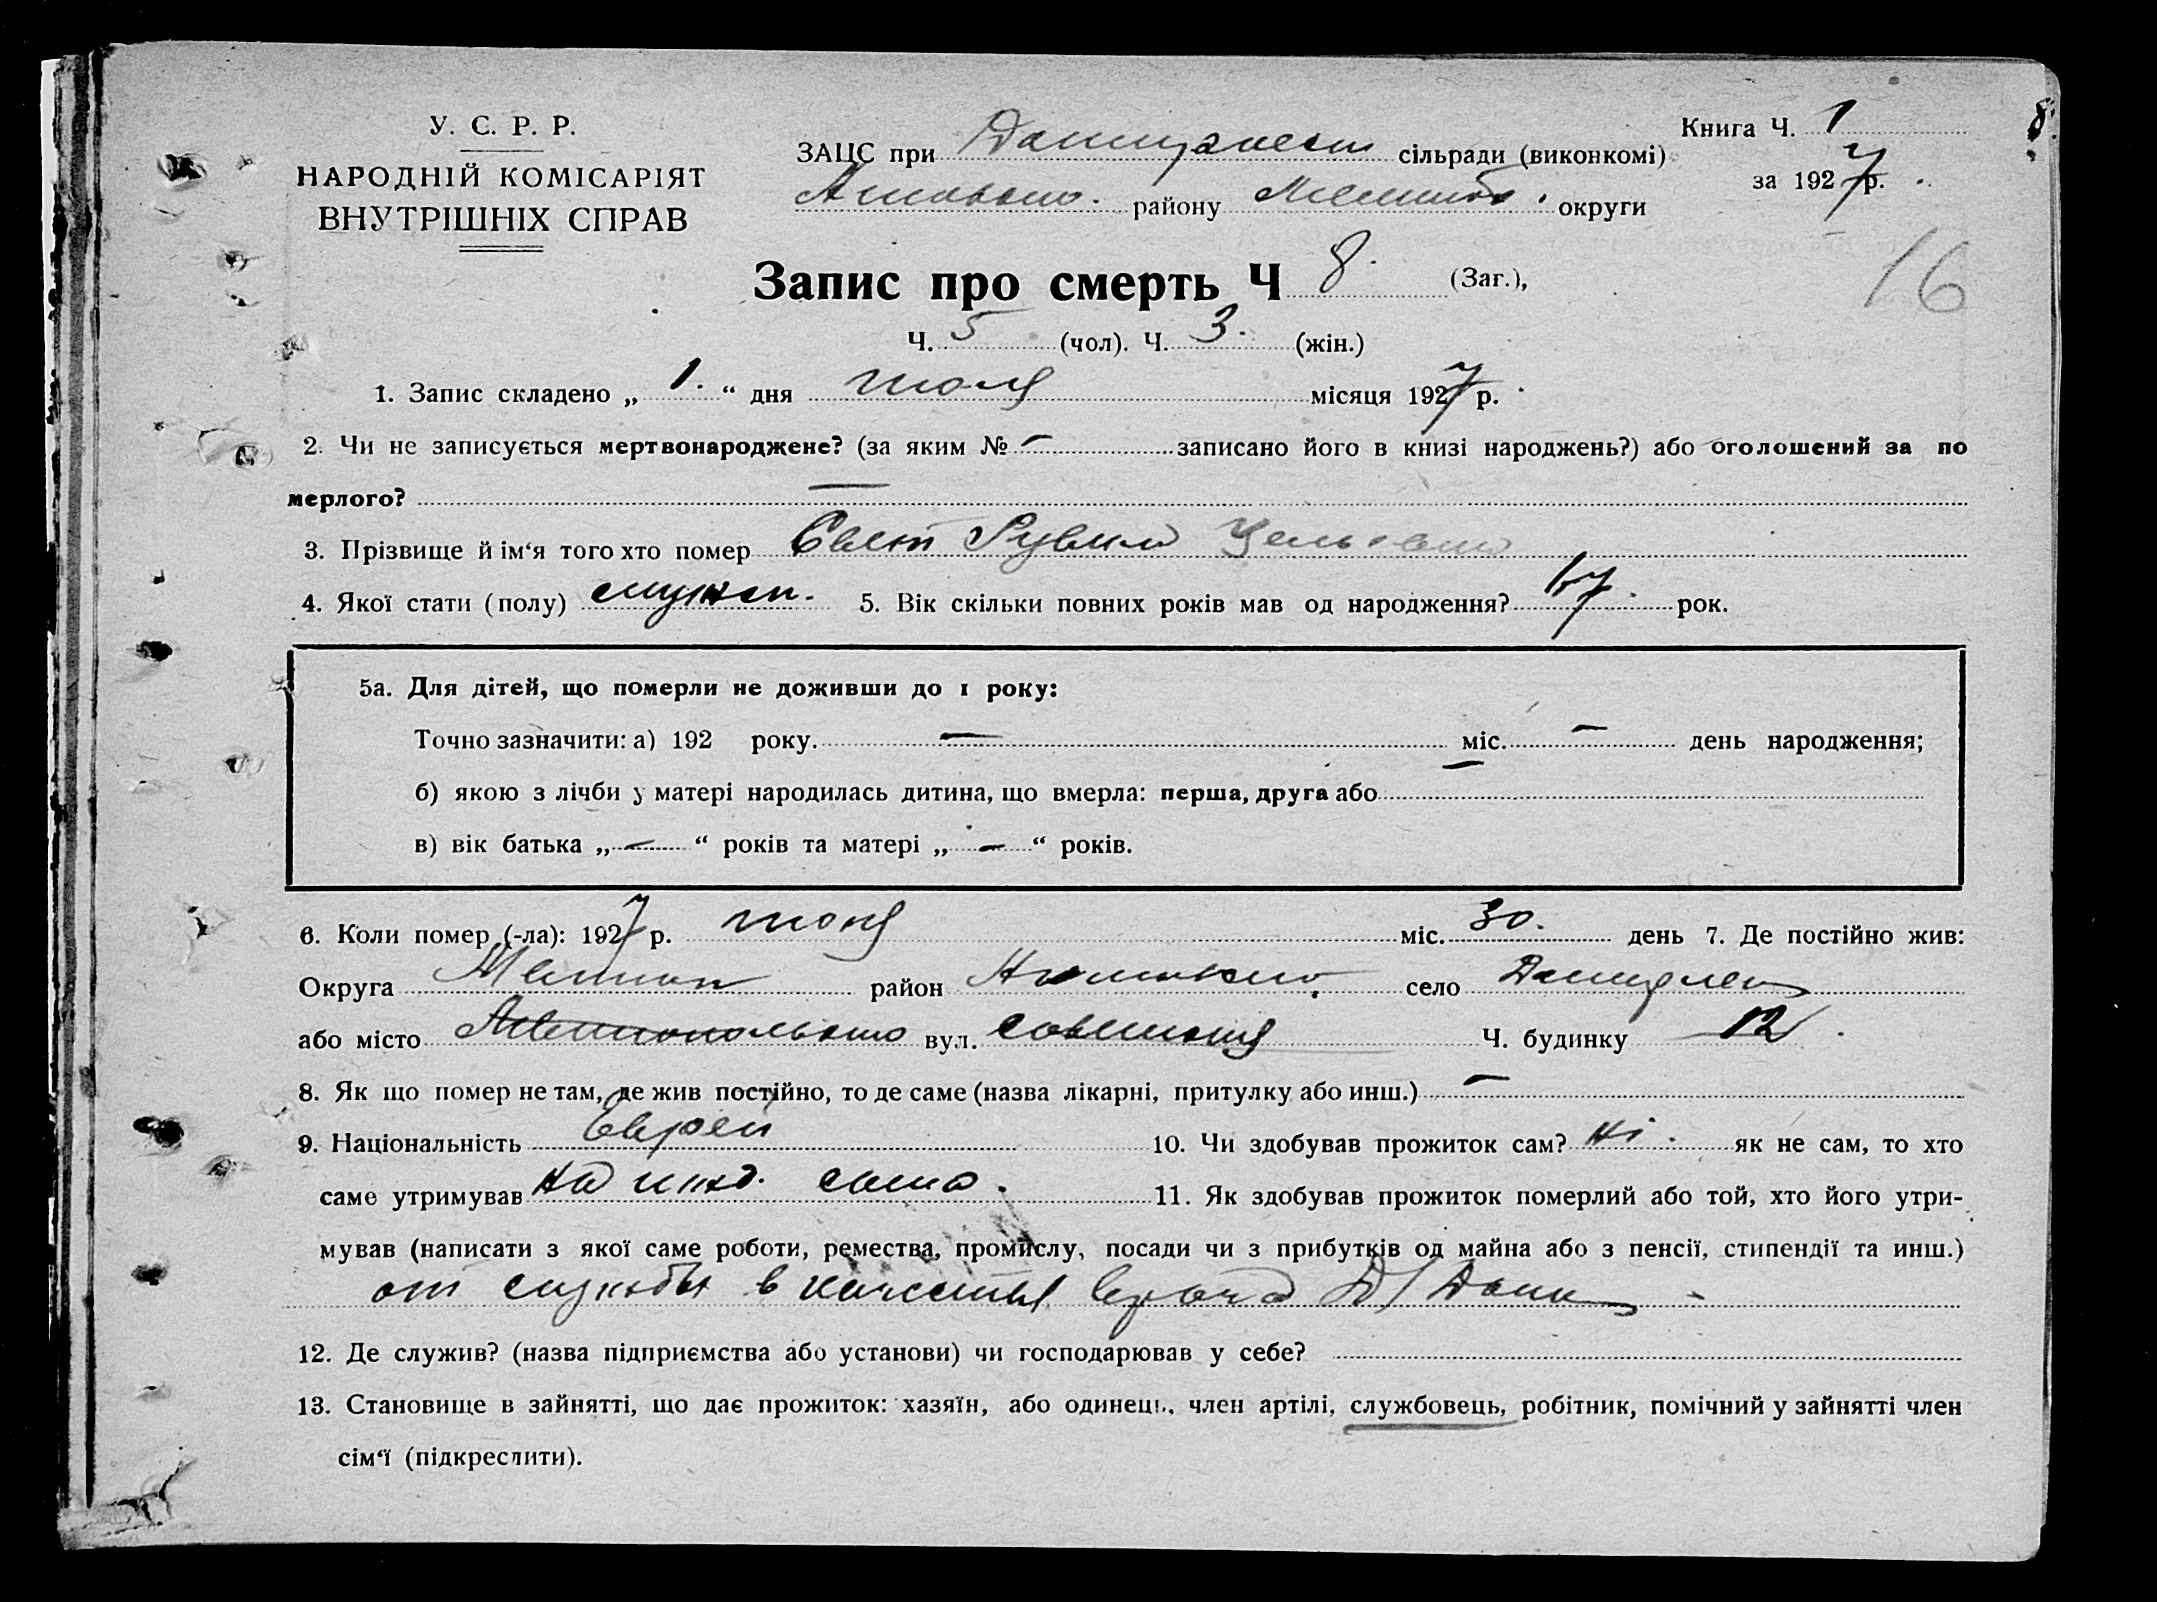 У. С. Р. Р.
НАРОДНІЙ КОМІСАРІЯТ
ВНУТРІШНІХ СПРАВ
Книга Ч. 1
8.
за 1927 р.
ЗАЦС при сільради (виконкомі)
району округи
16
Запис про смерть Ч 8. (Заг.),
Ч. 5 (чол). Ч. 3. (жін.)
1. Запис складено „ 1. “ дня июля місяця 1927 р.
2. Чи не записується мертвонароджене? (за яким № – записано його в книзі народжень?) або оголошений за по
мерлого? —
3. Прізвище й ім‘я того хто помер Рувим
4. Якої стати (полу) мужск. 5. Вік скільки повних років мав од народження? 67. рок.
5а. Для дітей, що померли не доживши до 1 року:
Точно зазначити: а) 192 року. — міс. — день народження;
б) якою з лічби у матері народилась дитина, що вмерла: перша, друга або —
в) вік батька „ — “ років та матері „ — “ років.
6. Коли помер (-ла): 1927 р. июня міс. 30. день 7. Де постійно жив:
Округа район село
або місто вул. Ч. будинку 12
8. Як що помер не там, де жив постійно, то де саме (назва лікарні, притулку або инш.) —
9. Національність Еврей 10. Чи здобував прожиток сам? Ні. як не сам, то хто
саме утримував На ижд. сына. 11. Як здобував прожиток померлий або той, хто його утри-
мував (написати з якої саме роботи, ремества, промислу, посади чи з прибутків од майна або з пенсії, стипендії та инш.)
от службы в качестве врача
12. Де служив? (назва підприємства або установи) чи господарював у себе?
13. Становище в зайнятті, що дає прожиток: хазяїн, або одинець, член артілі, службовець, робітник, помічний у зайнятті член
сім‘ї (підкреслити).